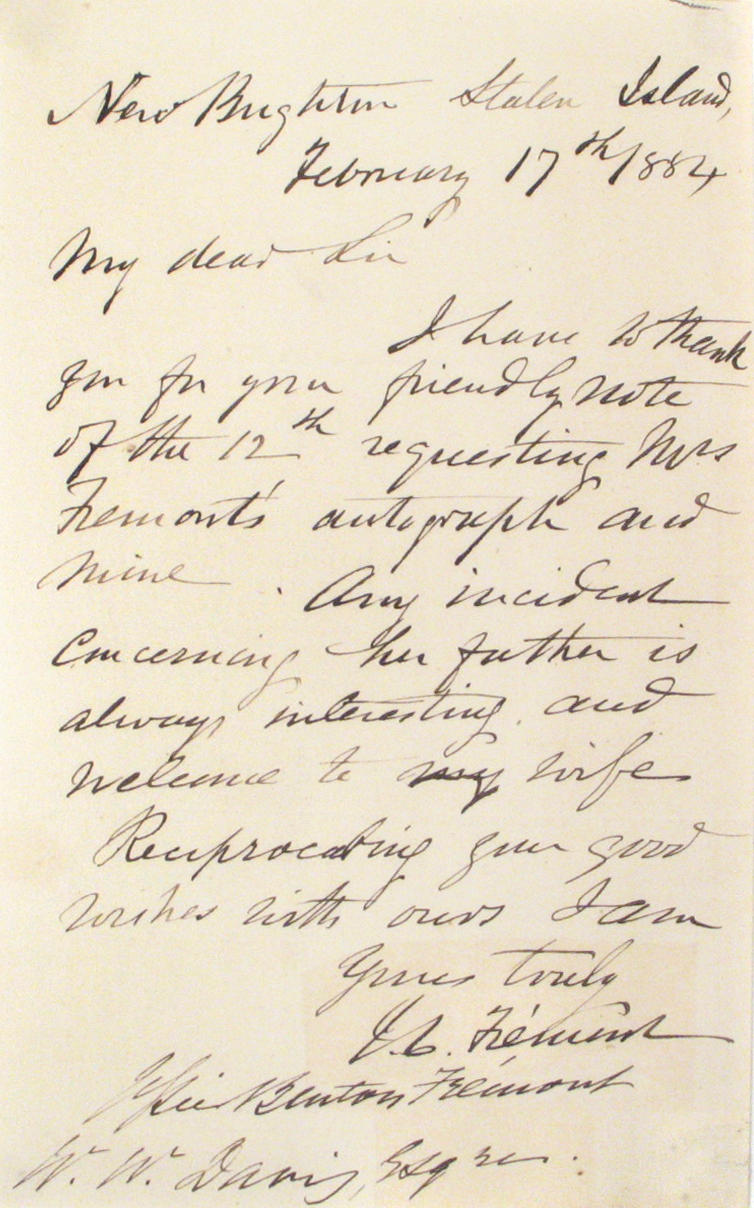 New Brighton Staten Island,
February 17th/884
My dear Sir
I have to thank
you for your friendly note
of the 12th requesting Mrs
Frémont's autograph and
mine. Any incident
concerning her father is
always interesting and
welcome to my wife
Reciprocating your good
wishes with ours I am
Yours truly
J. C. Frémont
Jessie Benton Frémont
W. W. Davis, Esqre.